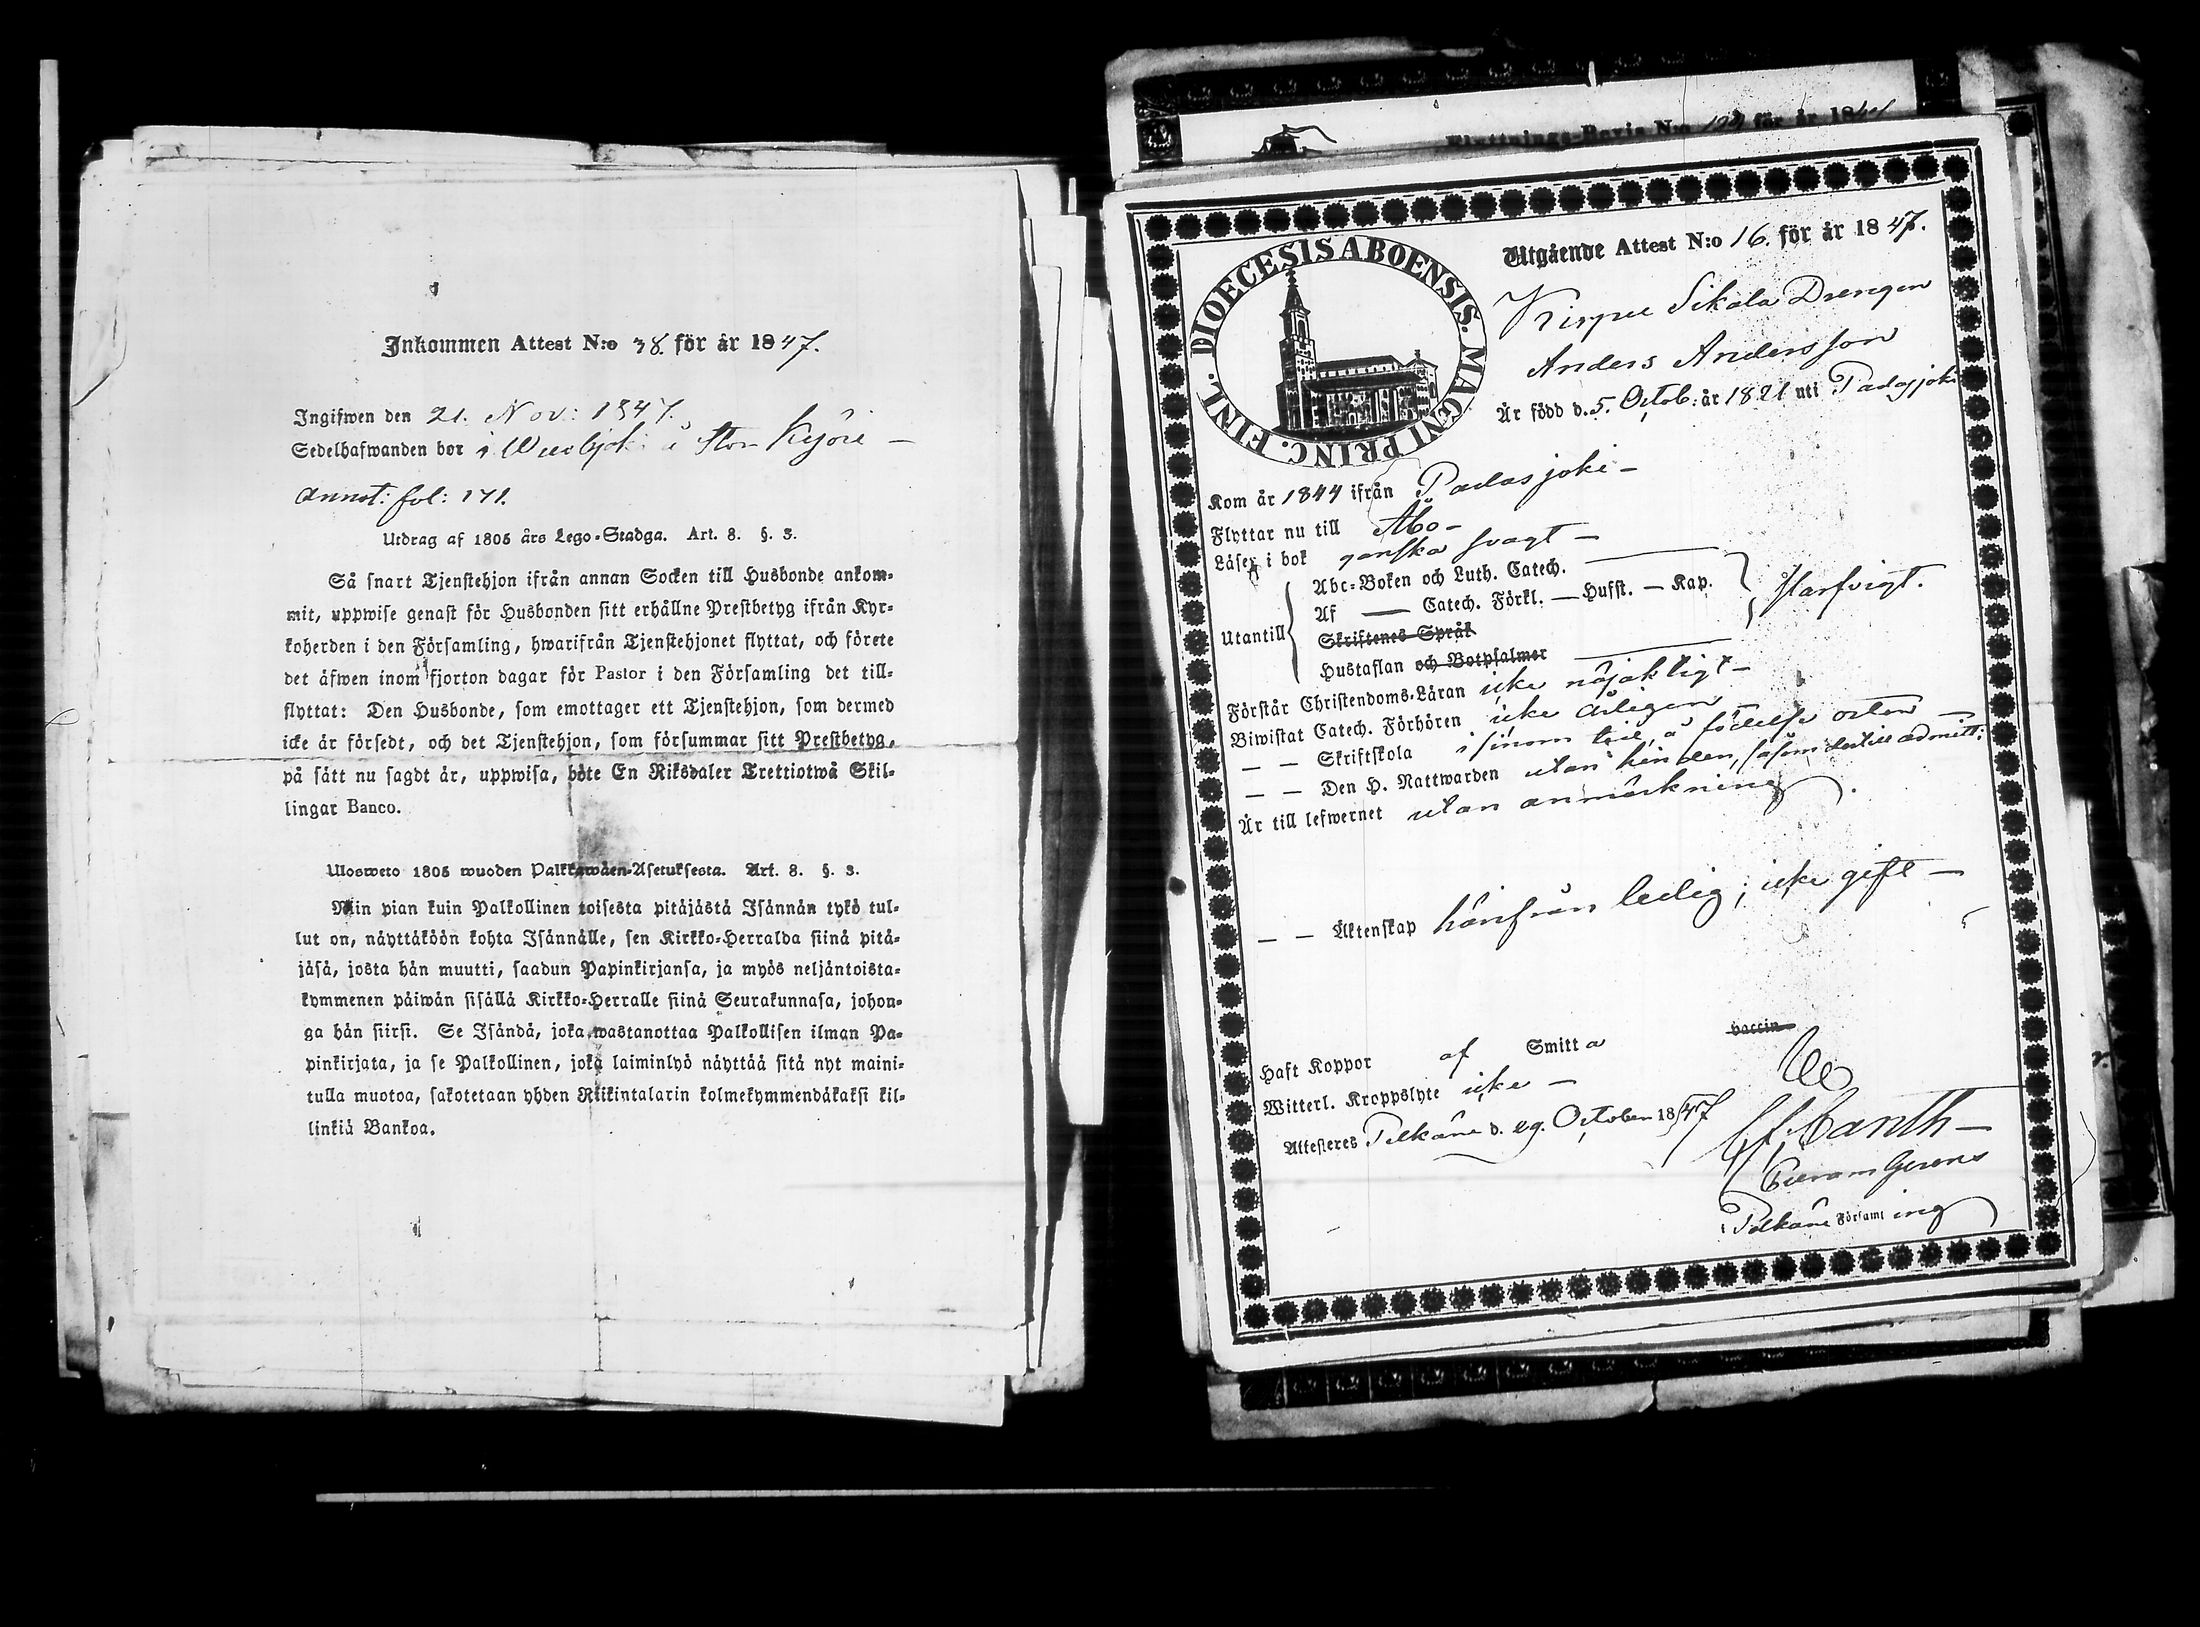 Inkommen Attest N:o 38. för år 1847.
Ingifwen den 21. Nov: 1847.
Sedelhafwanden bor i å Stor
Annot: fol: 171.
Utdrag af 1805 års Lego-Stadga. Art. 8. §. 3.
Så snart Tjenstehjon ifrån annan Socken till Husbonde ankom-
mit, uppwise genast för Husbonden sitt erhållne Prestbetyg ifrån Kyr-
koherden i den Församling, hwarifrån Tjenstehjonet flyttat, och förete
det äfwen inom fjorton dagar för Pastor i den Församling det till-
flyttat: Den Husbonde, som emottager ett Tjenstehjon, som dermed
icke är försedt, och det Tjenstehjon, som försummar sitt Prestbetyg,
på sätt nu sagdt är, uppwisa, böte En Riksdaler Trettiotwå Skil-
lingar Banco.
Ulosweto 1805 wuoden Palkkawäen-Asetuksesta. Art. 8. §. 3.
Niin pian kuin Palkollinen toisesta pitäjästä Isännän tykö tul-
lut on, näyttäköön kohta Isännälle, sen Kirkko-Herralda siinä pitä-
jäsä, josta hän muutti, saadun Papinkirjansa, ja myös neljäntoista-
kymmenen päiwän sisällä Kirkko-Herralle siinä Seurakunnasa, johon-
ga hän siirsi. Se Isändä, joka wastanottaa Palkollisen ilman Pa-
pinkirjata, ja se Palkollinen, joka laiminlyö näyttää sitä nyt maini-
tulla muotoa, sakotetaan yhden Riikintalarin kolmekymmendäkaksi kil-
linkiä Bankoa.
Flyttnings-Bevis N:o för år 184
DIOECESIS ABOENSIS. MAGNI PRINC. FINL.
Utgående Attest N:o 16. för år 1847.
Sikala Drengen
Anders Andersson
Är född d. 5. Octob: år 1821 uti Padasjoki
Kom år 1844 ifrån Padasjoki –
Flyttar nu till Åbo –
Läser i bok ganska svagt –
Utantill
Abc-Boken och Luth. Catech. —
Af — Catech. Förkl. — Husst. — Kap.
Skriftenes Språk
Hustaflan och Botpsalmer —
Förstår Christendoms-Läran icke nöjaktigt –
Biwistat Catech. Förhören icke årligen
— — Skriftskola i sinom tid, å födelse orten —
— — Den H. Nattwarden utan hinder, såsom dertill admitt:
Är till lefwernet utan anmärkning.
— — Äktenskap härifrån ledig; icke gift —
Haft Koppor af Smitta vaccin
Witterl. Kroppslyte icke —
Attesteras Pelkäne d. 29. October 1847
Canth —
Curam Gerens
i Pelkäne Församling